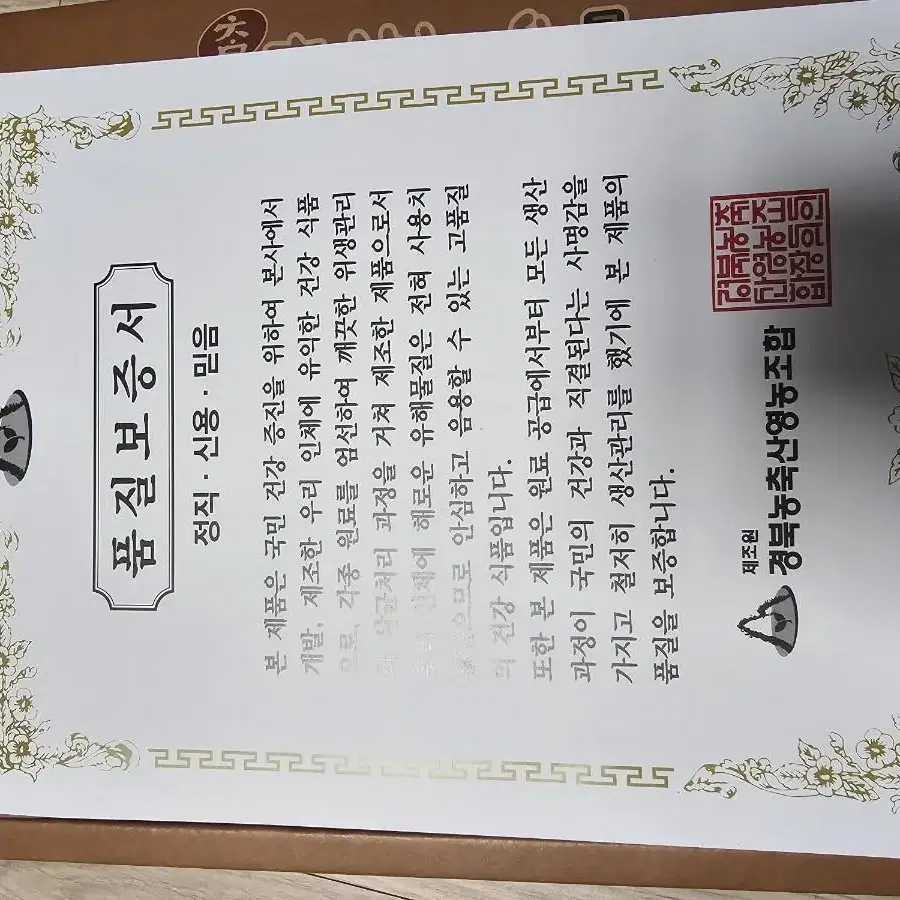 품질보증서
정직·신용·믿음
본 제품은 국민 건강 증진을 위하여 본사에서
개발, 제조한 우리 인체에 유익한 건강 식품
으로, 각종 원료를 엄선하여 깨끗한 위생관리
와 살균처리 과정을 거쳐 제조한 제품으로서
인체에 해로운 유해물질은 전혀 사용치
않았으므로 안심하고 음용할 수 있는 고품질
의 건강 식품입니다.
또한 본 제품은 원료 공급에서부터 모든 생산
과정이 국민의 건강과 직결된다는 사명감을
가지고 철저히 생산관리를 했기에 본 제품의
품질을 보증합니다.
제조원
경북농축산영농조합
경북농축
산영농조
합장의인